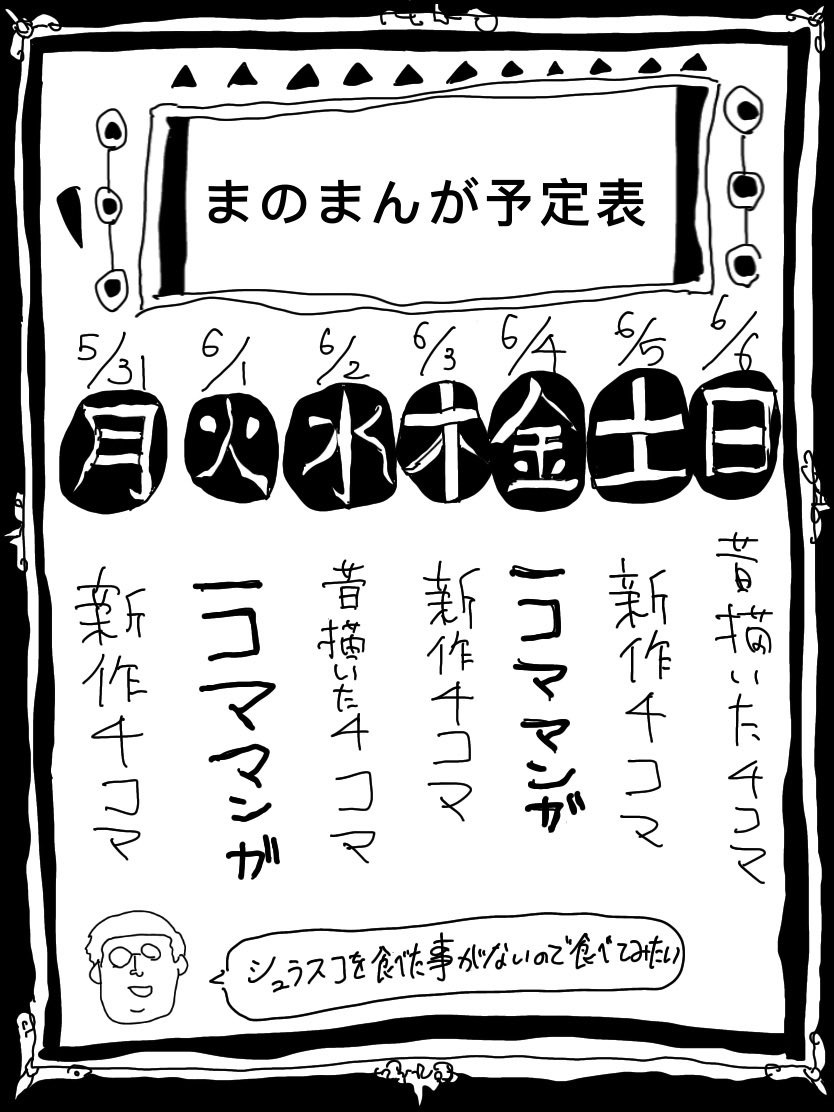 まのまんが予定表
5/31
月
新作4コマ
6/1
火
一コママンガ
6/2
水
昔描いた4コマ
6/3
木
新作4コマ
6/4
金
一コママンガ
6/5
土
新作4コマ
6/6
日
昔描いた4コマ
シュラスコを食べた事がないので食べてみたい